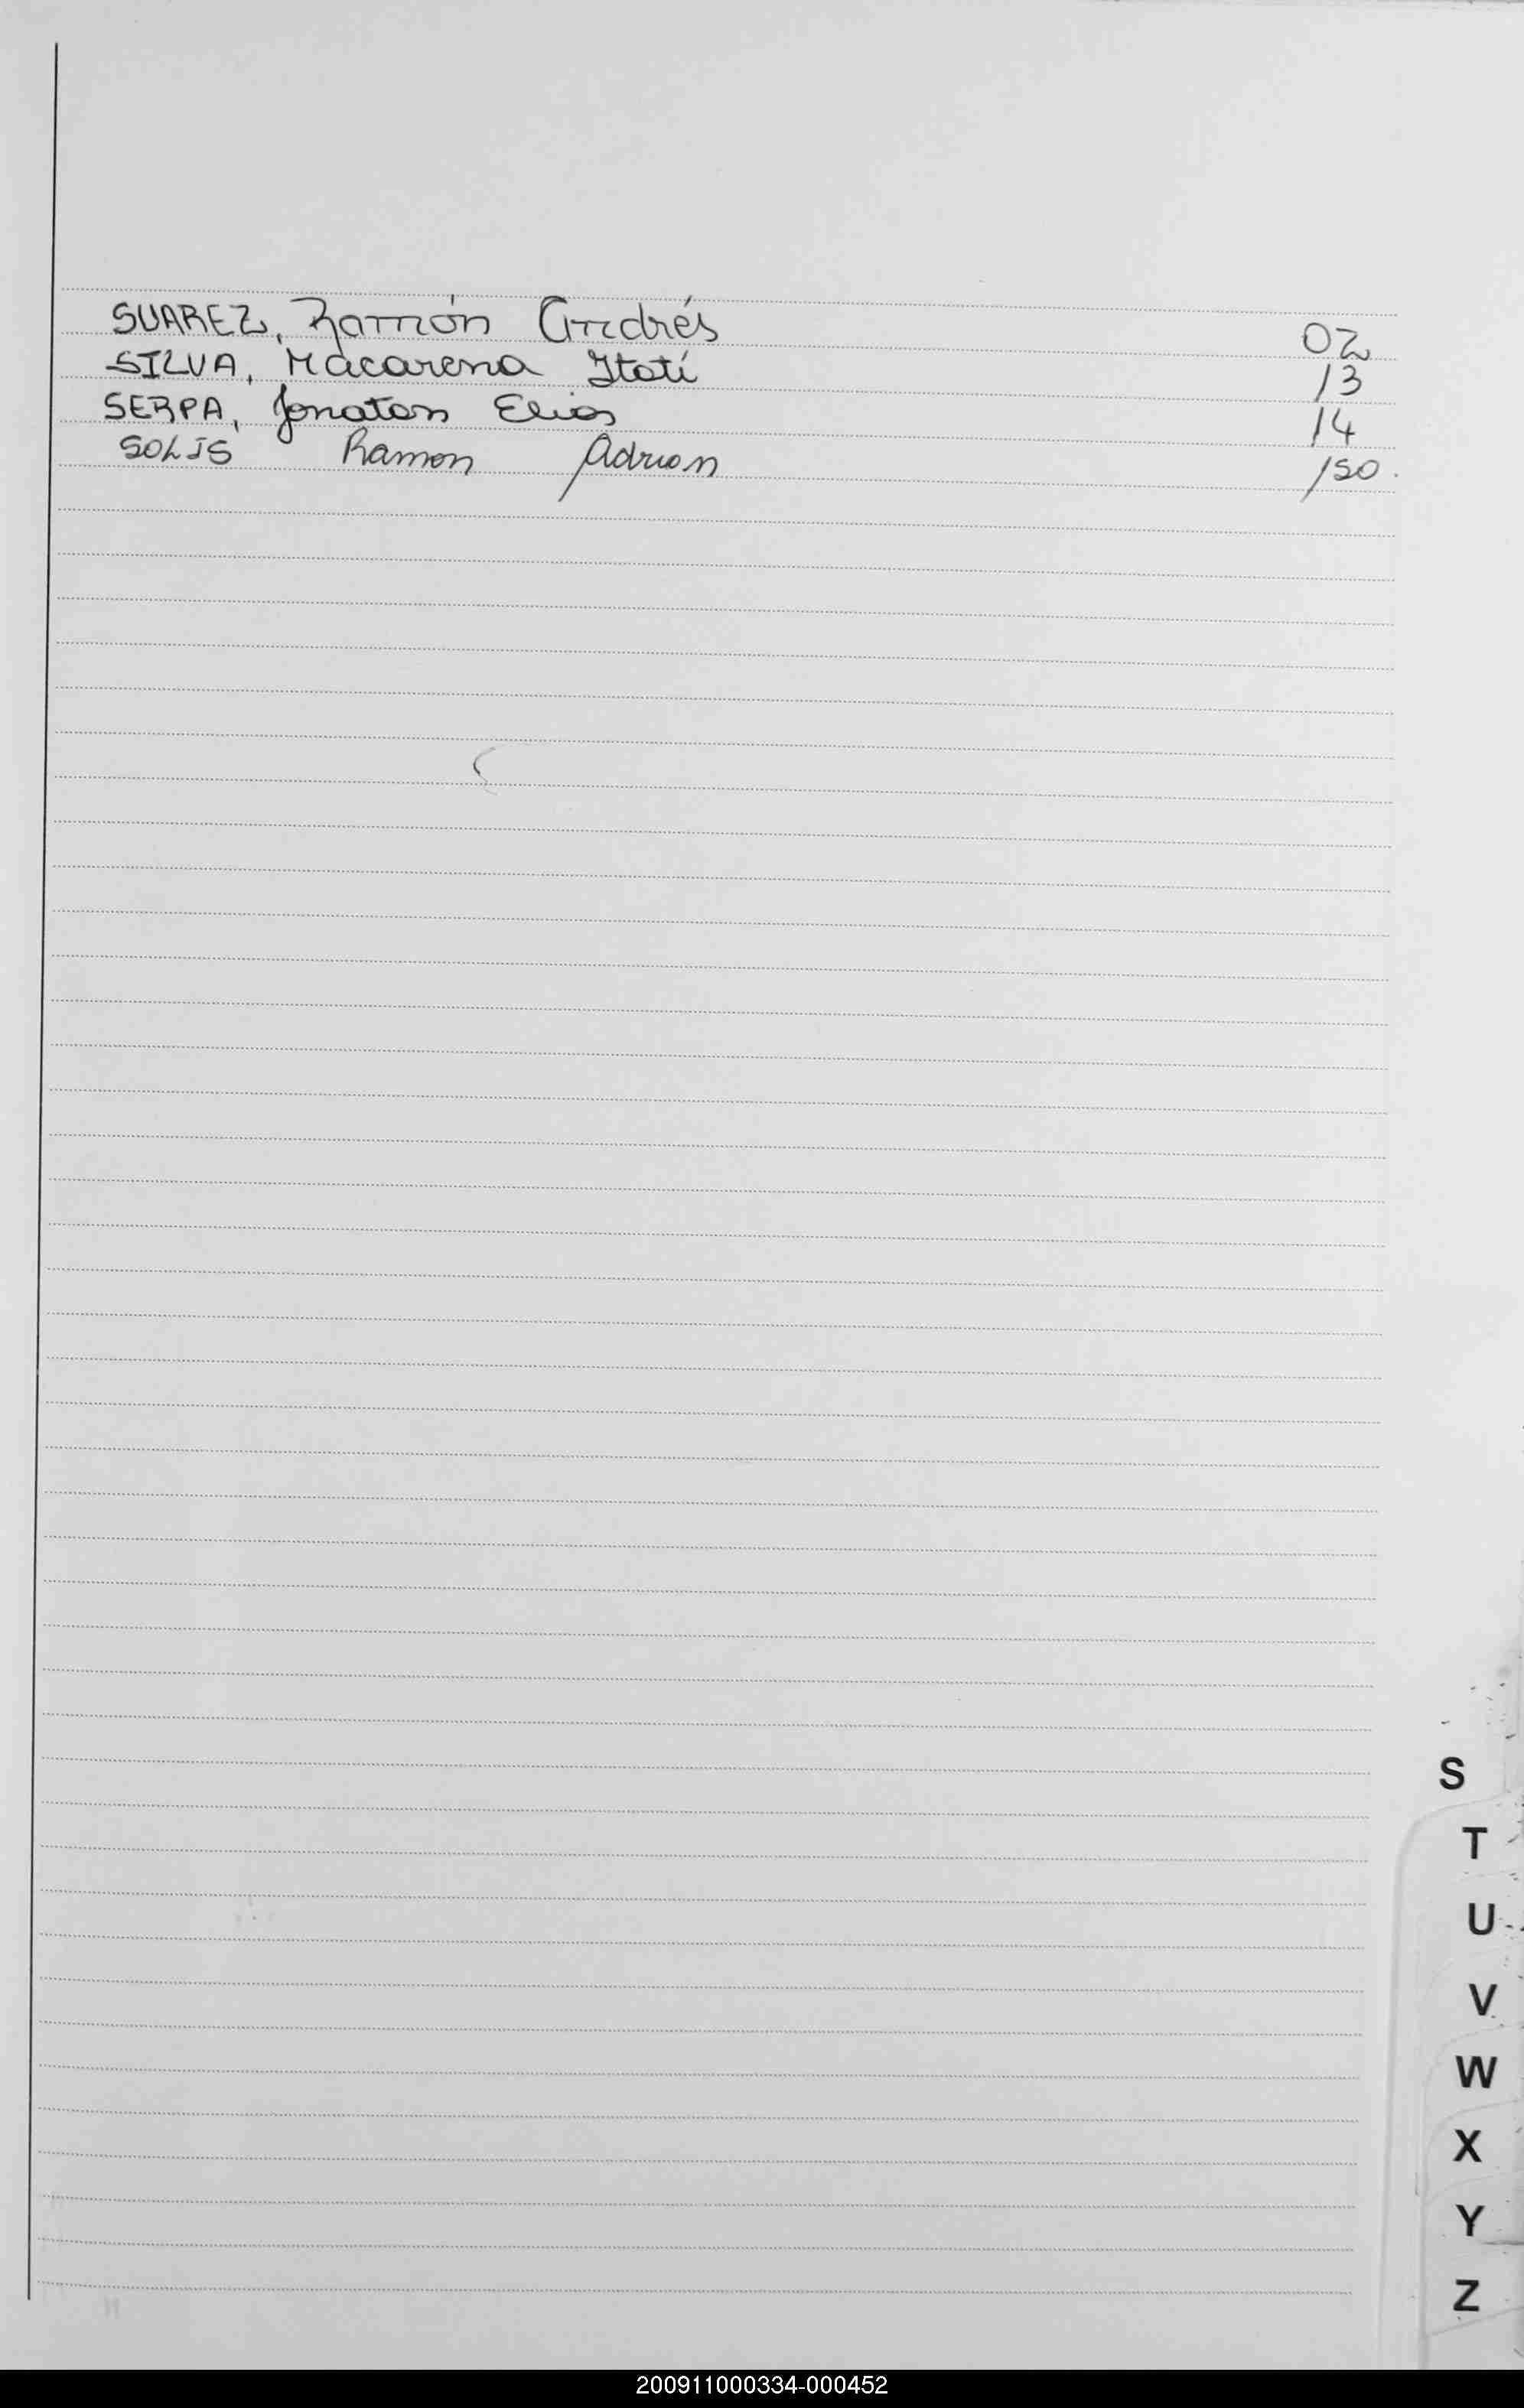 SUAREZ, Ramón Andrés 02
SILVA, Macarena Itatí 13
SERPA, Jonatan Elias 14
SOLIS Ramon Adrian 150.
S
T
U
V
W
X
Y
Z
200911000334-000452